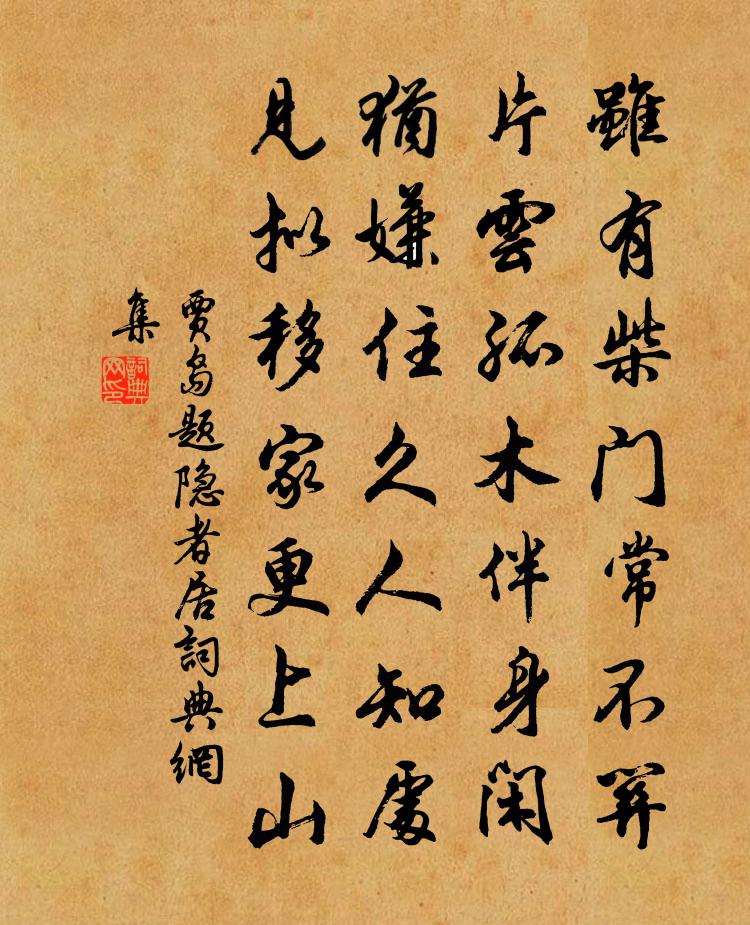 雖有柴门常不関
片雲孤木伴身闲
猶嫌住久人知處
見拟移家更上山
賈島题隐者居詞典網
集
詞典网印